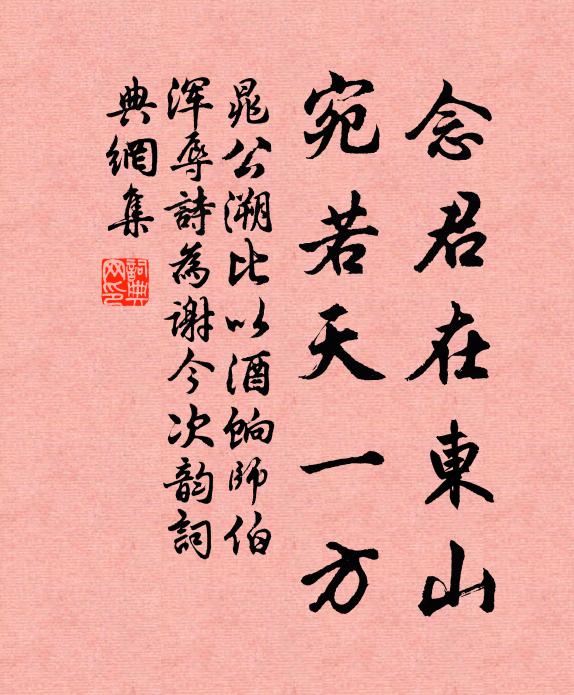 念君在東山
宛若天一方
晁公溯比以酒餉師伯
渾辱詩為謝今次韵詞
典網集
詞典
网印